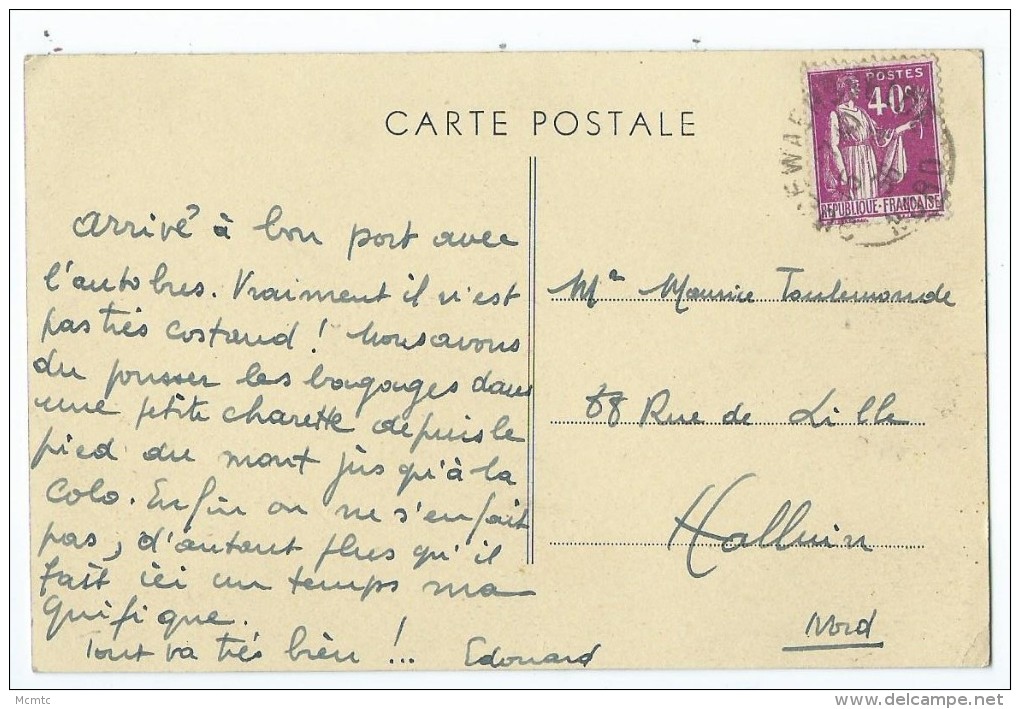 CARTE POSTALE
POSTES
40c
REPUBLIQUE-FRANCAISE
arrivé à bon port avec
l'autobus. Vraiment il n'est
pas très costaud ! Nous avons
du pousser les bagages dans
une petite charette depuis le
pied du mont jus qu'à la
Colo. Enfin on ne s'en fait
pas, d'autant plus qu'il
fait ici un temps ma
gnifique.
Tout va très bien !... Edouard
Mr Maurice Toulemonde
88 Rue de Lille
Halluin
Nord
Mcmtc
www.delcampe.net